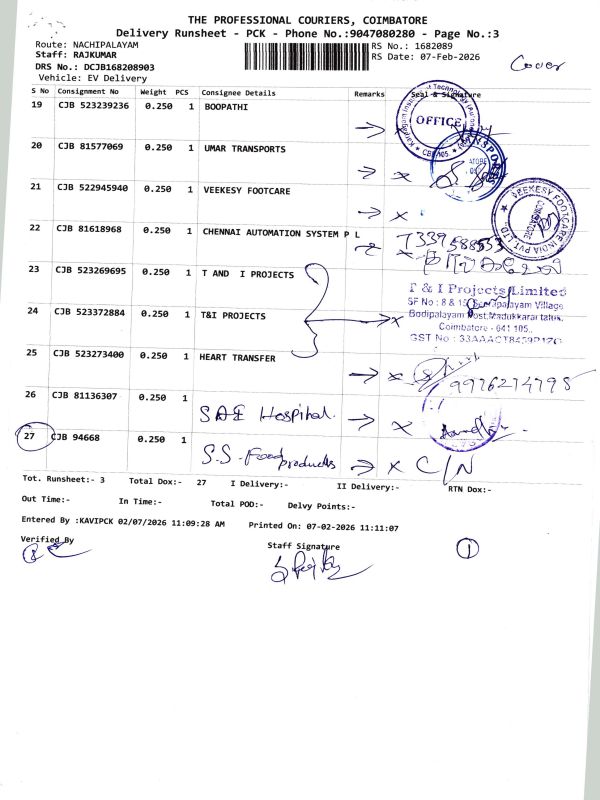 THE PROFESSIONAL COURIERS, COIMBATORE
Delivery Runsheet - PCK - Phone No.:9047080280 - Page No.:3
Route: NACHIPALAYAM
RS No.: 1682089
Staff: RAJKUMAR
RS Date: 07-Feb-2026
Cover
DRS No.: DCJB168208903
Vehicle: EV Delivery
S No Consignment No Weight PCS Consignee Details Remarks Seal & Signature
19 CJB 523239236 0.250 1 BOOPATHI
OFFICE
20 CJB 81577069 0.250 1 UMAR TRANSPORTS
21 CJB 522945940 0.250 1 VEEKESY FOOTCARE
VEEKESY FOOTCARE INDIA PVT. LTD.
COIMBATORE
22 CJB 81618968 0.250 1 CHENNAI AUTOMATION SYSTEM P L
23 CJB 523269695 0.250 1 T AND I PROJECTS
T & I Projects Limited
SF No : 8 & 15, Seerapalayam Village
24 CJB 523372884 0.250 1 T&I PROJECTS
Bodipalayam Post, Madukkarai taluk,
Coimbatore - 641 105.
25 CJB 523273400 0.250 1 HEART TRANSFER
9976214795
26 CJB 81136307 0.250 1
Hospital
27 CJB 94668 0.250 1 S.S. Food products C/N
Tot. Runsheet:- 3 Total Dox:- 27 I Delivery:- II Delivery:- RTN Dox:-
Out Time:- In Time:- Total POD:- Delvy Points:-
Entered By :KAVIPCK 02/07/2026 11:09:28 AM Printed On: 07-02-2026 11:11:07
Verified By
Staff Signature
1